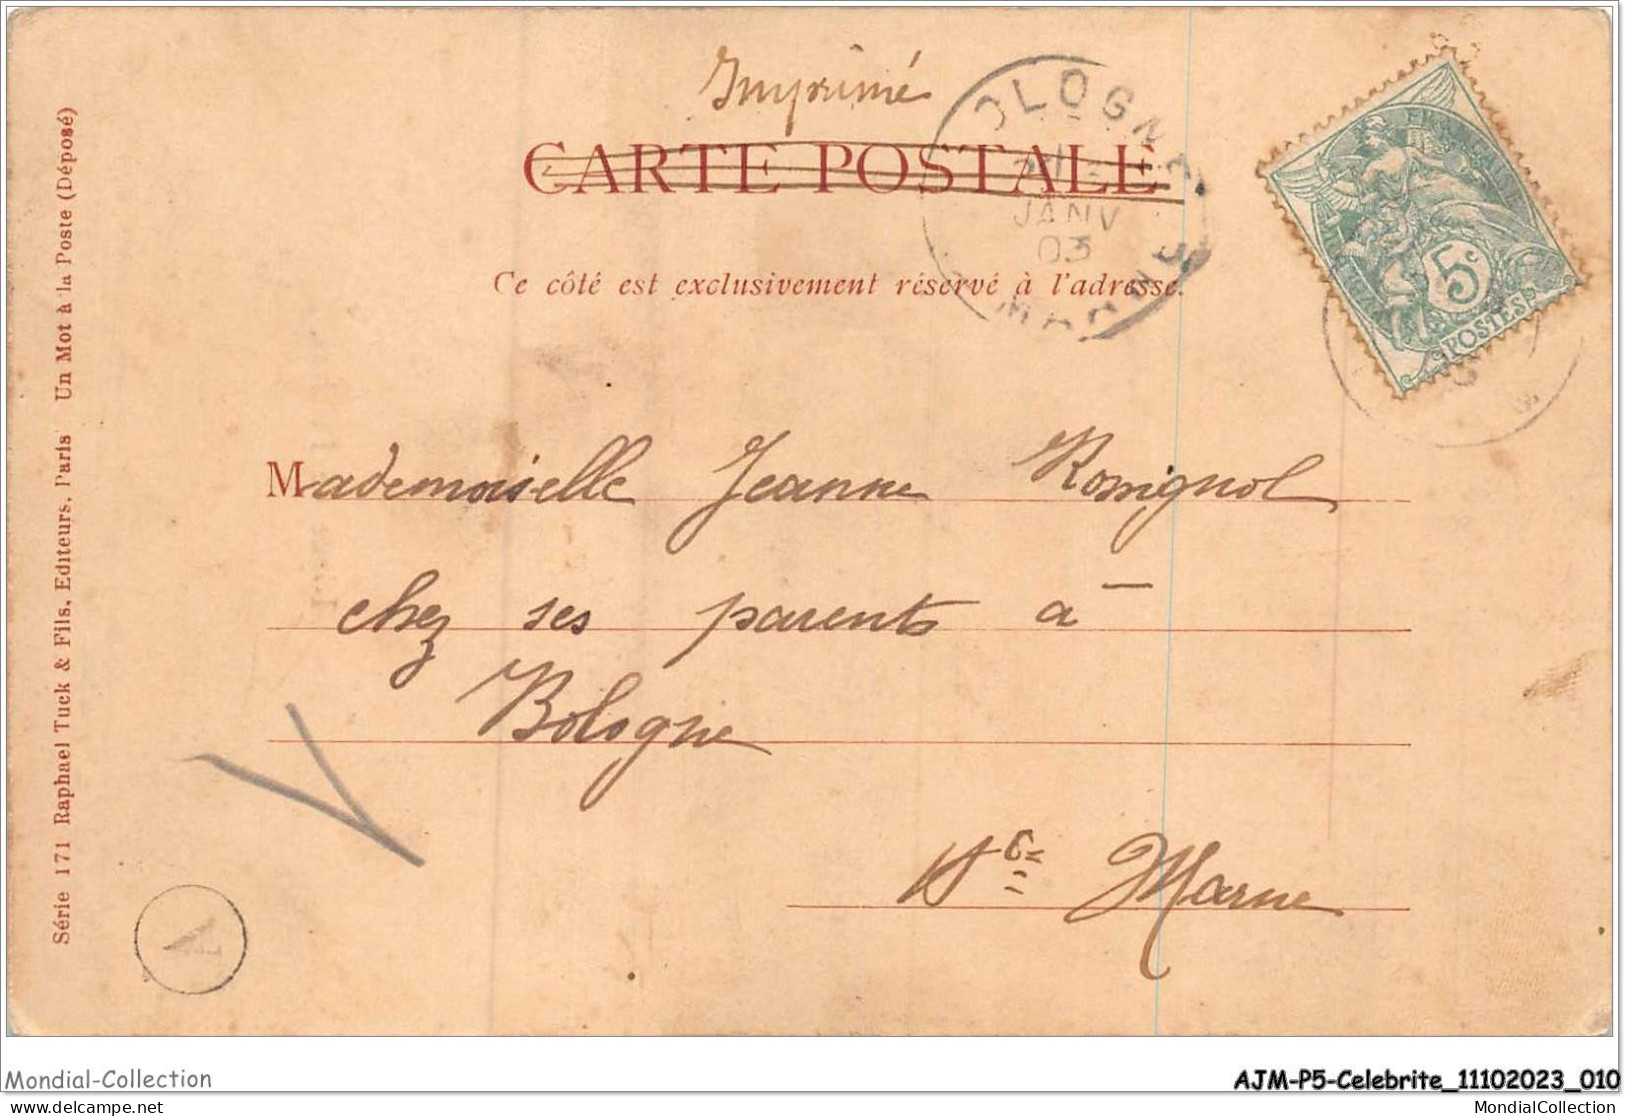 Imprimé
CARTE POSTALE
OLOGNE
JANV
03
MARNE
Ce côté est exclusivement réservé à l'adresse.
5c
POSTES
Mademoiselle Jeanne Rossignol
chez ses parents à
Bologne
Hte Marne
A
Série 171 Raphael Tuck & Fils, Editeurs, Paris Un Mot à la Poste (Déposé)
Mondial-Collection
delcampe.net
AJM-P5-Celebrite_11102023_010
MondialCollection